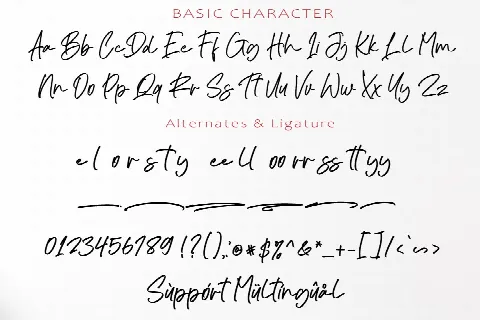 BASIC CHARACTER
Aa Bb Cc Dd Ee Ff Gg Hh Ii Jj Kk Ll Mm
Nn Oo Pp Qq Rr Ss Tt Uu Vv Ww Xx Yy Zz
Alternates & Ligature
e l o r s t y ee ll oo rr ss tt yy
0123456789 !?(),;@*$%^&*_+-[]/<'":>
Sùppórt Mültingûâl